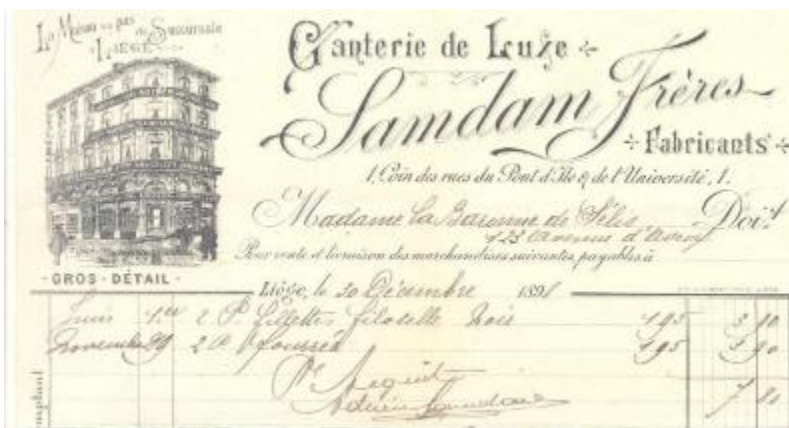 La Maison n'a pas de Succursale
LIÉGE
Ganterie de Luxe
Samdam Frères
Fabricants
1, Coin des rues du Pont d'Ile & de l'Université, 1.
Madame la Baronne de Sélis Doit
Avenue d'Avroy
Pour vente et livraison des marchandises suivantes, payables à
GROS - DÉTAIL
Liége, le 30 Décembre 189
Juin 1er 2 P. filoselle noir 195 3 90
Novembre 29 2 P 195 3 90
Pr Acquit 7 80
Samdam